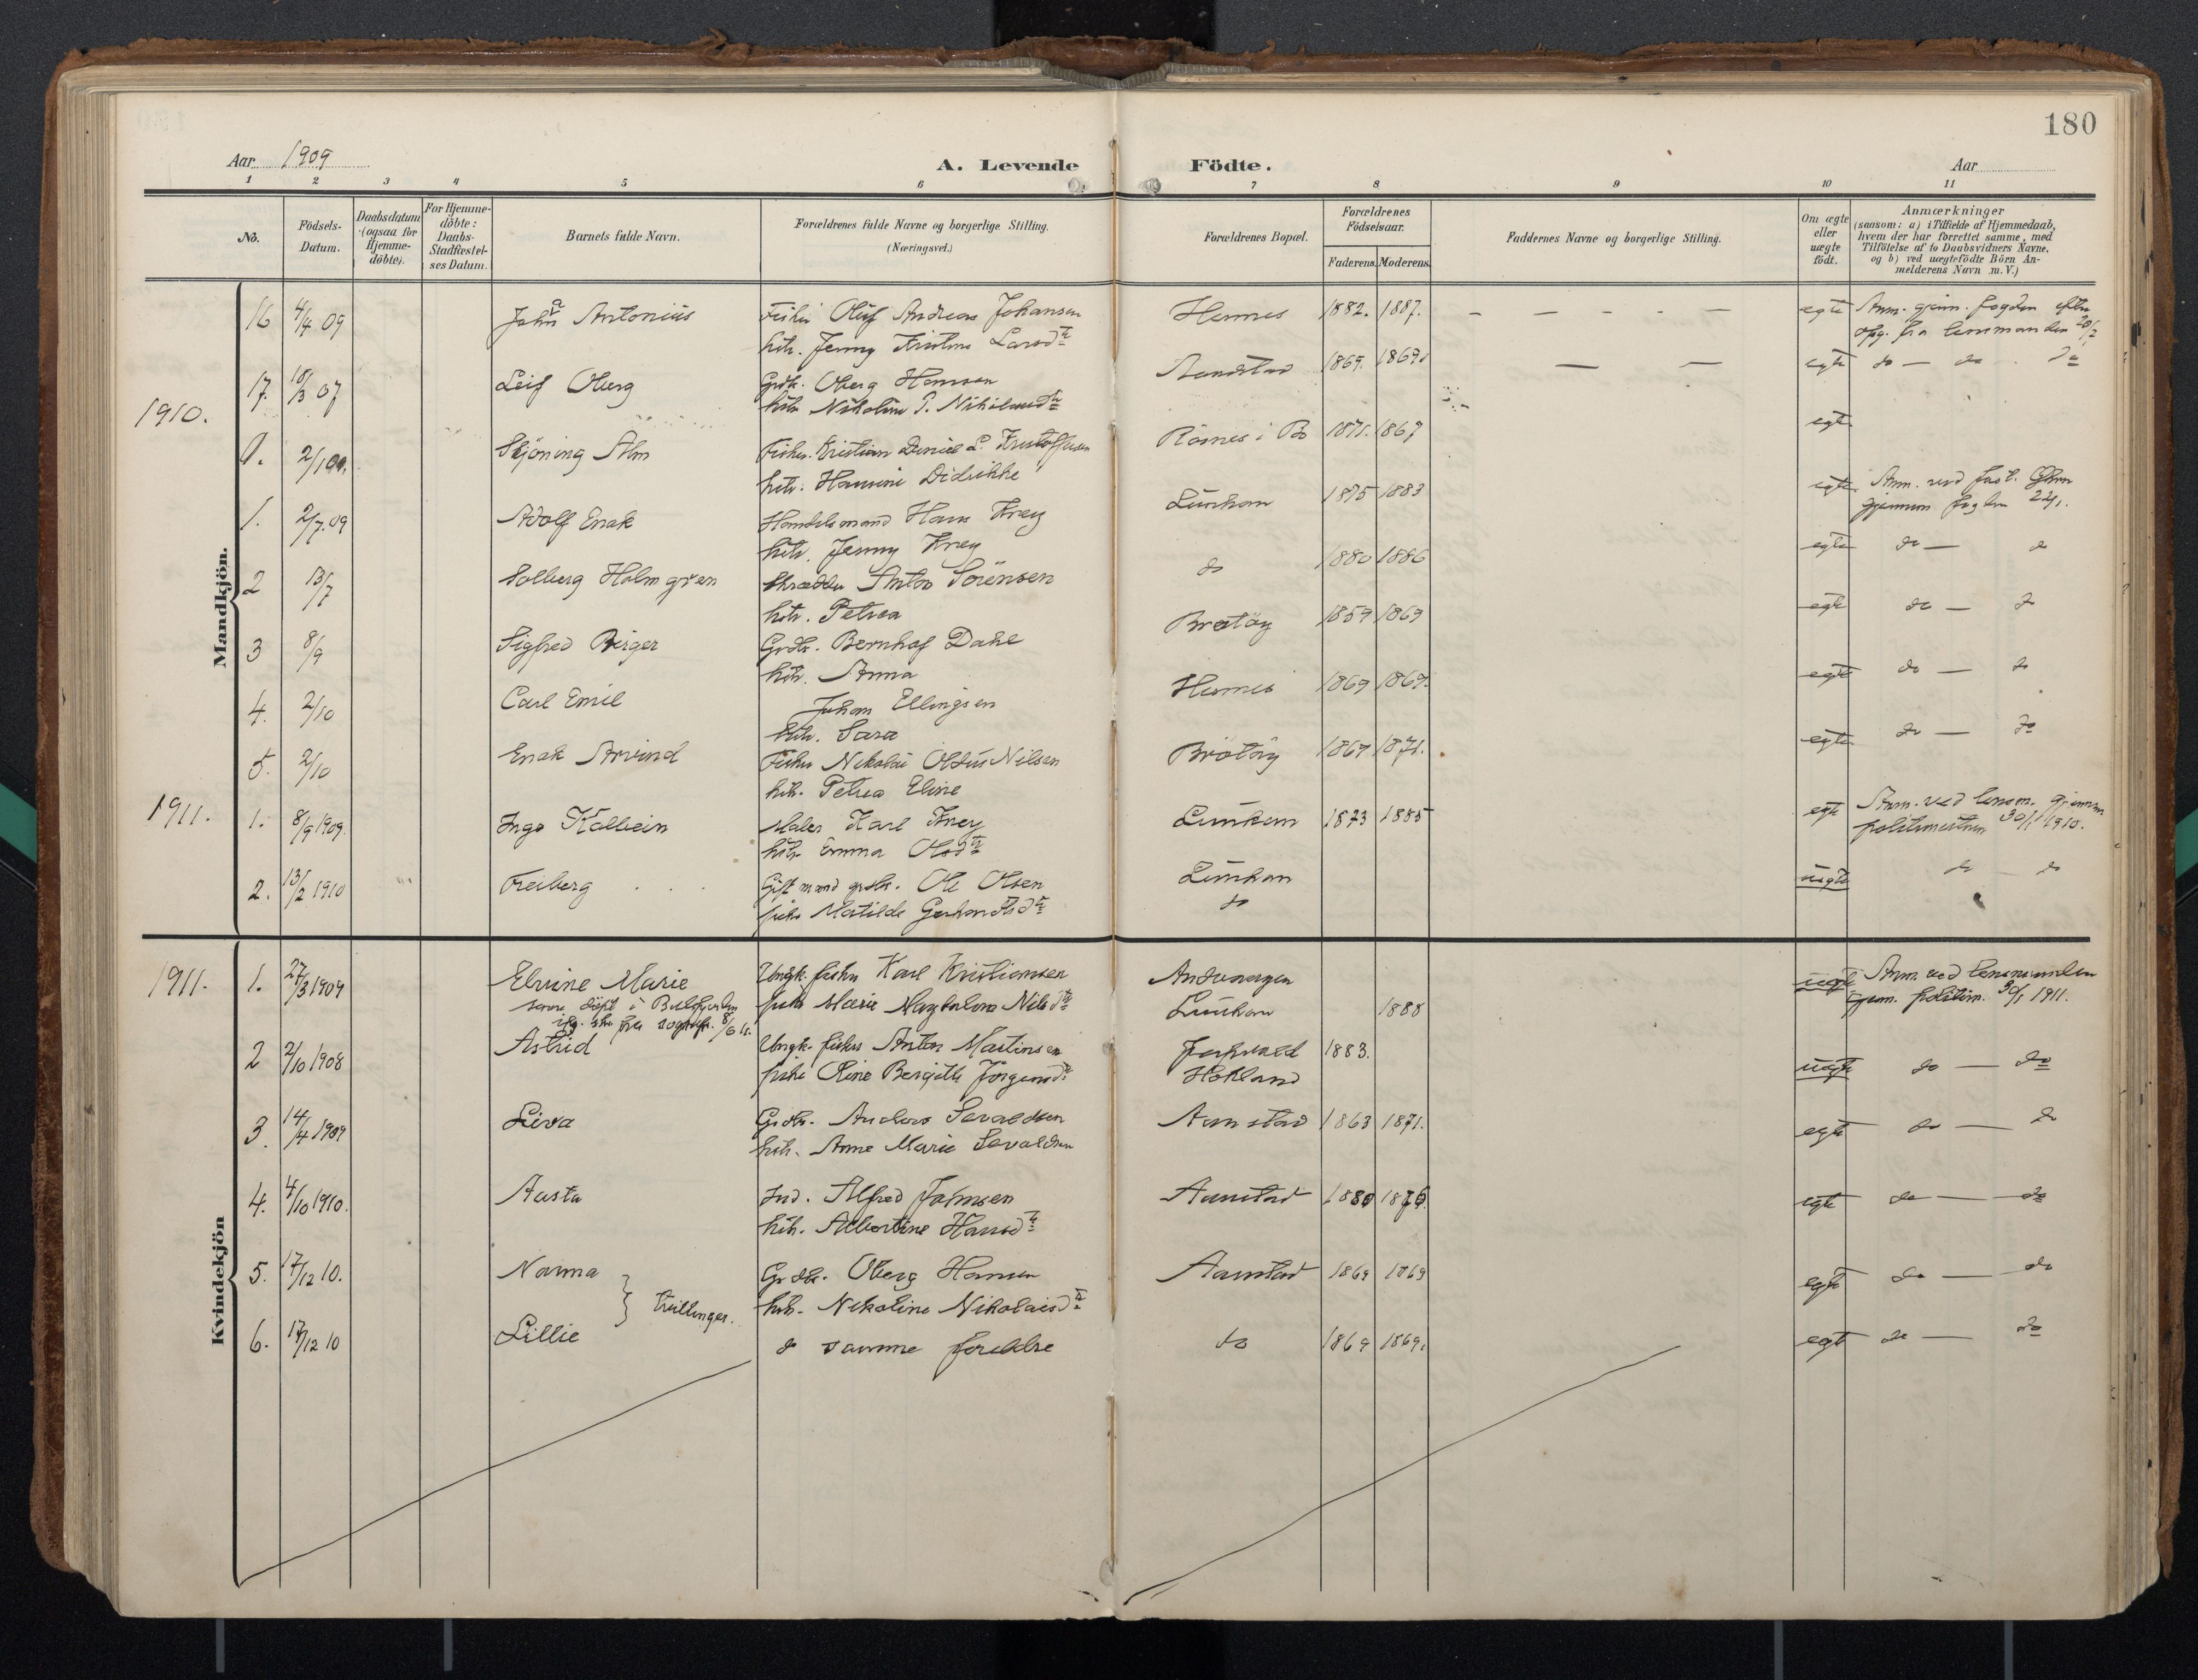 180
Aar 1909
A. Levende Födte.
Aar
1 2 3 4 5 6 7 8 9 10 11
No.
Födsels-Datum.
Daabsdatum (ogsaa for Hjemme-döbte).
For Hjemme-döbte: Daabs-Stadfæstel-ses Datum.
Barnets fulde Navn.
Forældrenes fulde Navne og borgerlige Stilling. (Næringsvei.)
Forældrenes Bopæl.
Forældrenes Födselsaar.
Faderens. Moderens.
Faddernes Navne og borgerlige Stilling.
Om ægte eller uægte födt.
Anmærkninger
(saasom: a) i Tilfælde af Hjemmedaab,
hvem der har forrettet samme, med
Tilföielse af to Daabsvidners Navne,
og b) ved uægtefödte Börn An-
melderens Navn m. V.)
Mandkjön.
16 4/4 09 Johan Antonius Fisker Oluf Andreas Johansen Hennes 1882. 1887. - - - - - egte Anm. gjen. fogden efter
htr. Jenny Kristine Larsdtr opg. fra lensmanden 20/2
17. 18/3 07 Leif Oberg Grdbr. Oberg Hansen 1869. 1869. — — egte do — do do
htr Nikoline P.
1910.
2/1 00. Alm Fisker. Kristian Daniel L. Kristoffersen i Bö 1871. 1867 egte
htr. Hansine Didrikke
1. 2/7.09 Adolf Enok Handelsmand Hans Krey Lunkan 1875 1883 egte Anm. ved
htr. Jenny Krey gjennem fogden 22/1.
2 13/7 Solberg Holmgren Skrædder Anton Sörensen do 1880 1886 egte do — do
htr. Petrea
3 8/9 Sigfred Birger Grdbr. Bernhof Dahl Brotöy 1859 1869 egte do — do
htr. Anna
4. 2/10 Carl Emil Johan Ellingsen Hennes 1869 1869. egte do — do
htr. Sara
5. 2/10 Enok Arvind Fisker Nikolai Olsen Nilsen Brotöy 1869 1871. egte do — do
htr. Petrea Eline
1911. 1. 8/9 1909. Inge Kolbein Maler Karl Krey Lunkan 1873 1885 egte Anm. ved lensm. gjennem
htr. Emma Olsdtr politimesteren 30/1 1910.
2. 13/2 1910 Freiberg Gift mand grdbr. Ole Olsen Lunkan uegte do — do
pike Matilde Gerhardtsdtr do
Kvindekjön
1911. 1. 27/3 1909 Elvine Marie Ungk. fisker Karl Kristiansen uegte Anm. ved lensmanden
senere döpt i
pike Marie Magdalena Nilsdtr Lunkan 1888 gjem. politim. 30/1 1911.
2 2/10 1908 Astrid Ungk. fisker Anton Martinsen 1883. uegte do — do
pike Oline Bergitte Jörgensdtr Hokland
3. 14/4 1909 Liva Grdbr. Anders Sevaldsen Aanstad 1863 1871. egte do — do
htr. Anne Marie Sevaldsen
4. 4/10 1910. Aasta Ind. Alfred Johnsen Aanstad 1880 1876 egte do — do
htr. Albertine Hansdtr
5. 17/12 10. Norma Grdbr. Oberg Hansen Aanstad 1869 1869 egte do — do
tvillinger. htr. Nikoline Nikolaisdtr
6. 17/12 10 Lillie do samme foreldre do 1869 1869. egte do — do